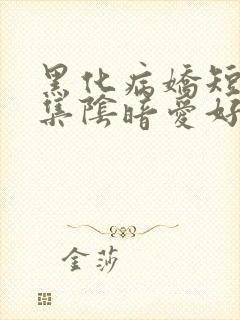 黑化病嬌短
集陰暗愛好
金莎